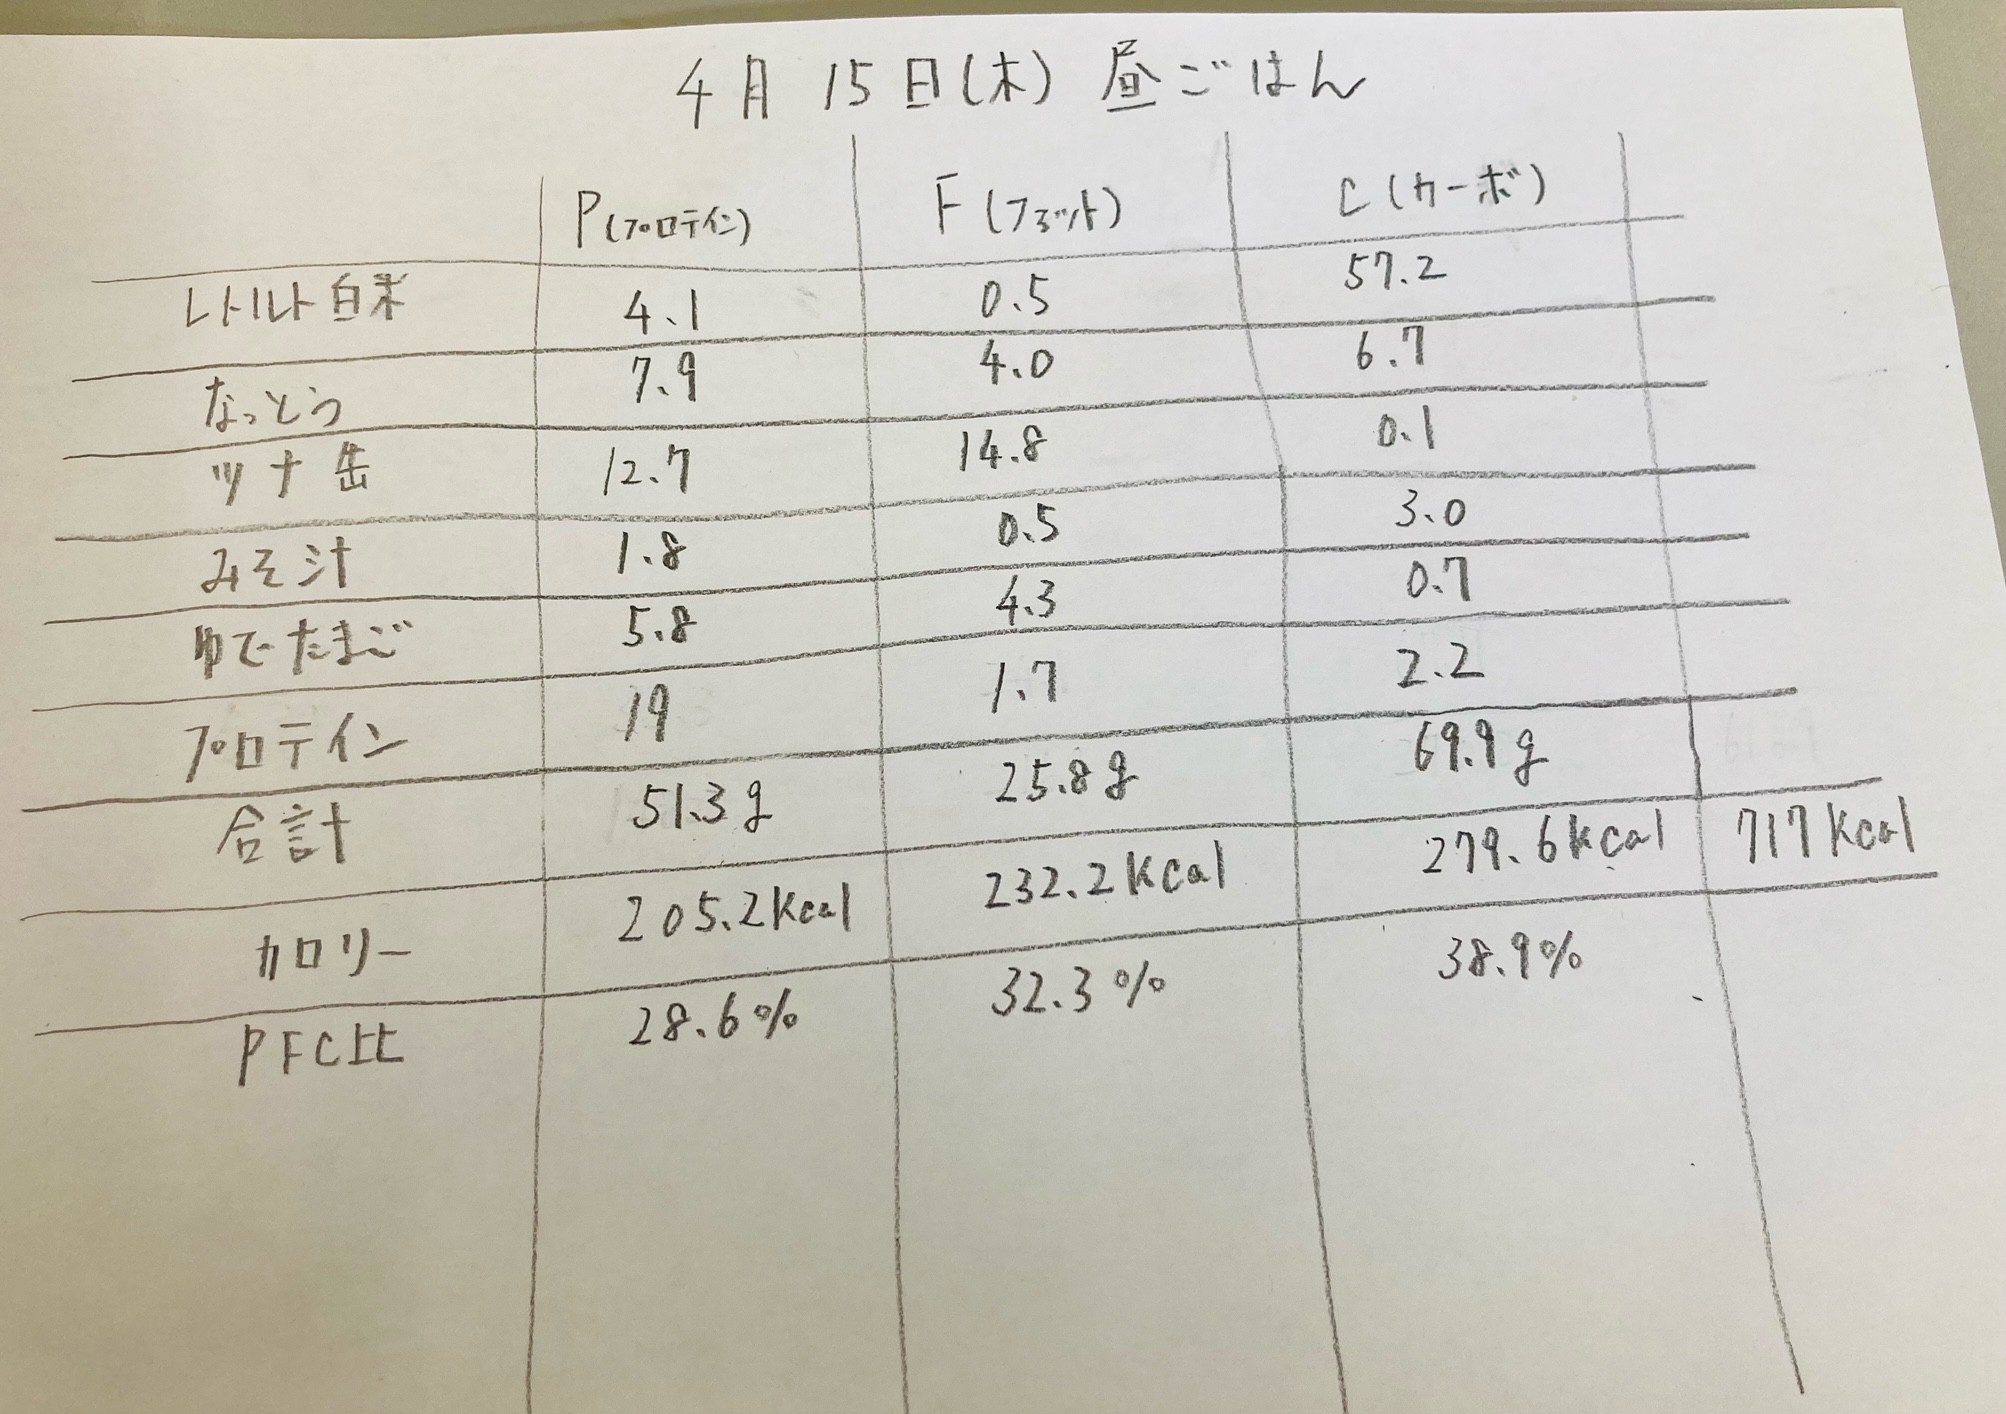 4月 15日(木) 昼ごはん
P(プロテイン) F(ファット) C(カーボ)
レトルト白米 4.1 0.5 57.2
なっとう 7.9 4.0 6.7
ツナ缶 12.7 14.8 0.1
みそ汁 1.8 0.5 3.0
ゆでたまご 5.8 4.3 0.7
プロテイン 19 1.7 2.2
合計 51.3g 25.8g 69.9g
カロリー 205.2kcal 232.2kcal 279.6kcal 717kcal
PFC比 28.6% 32.3% 38.9%